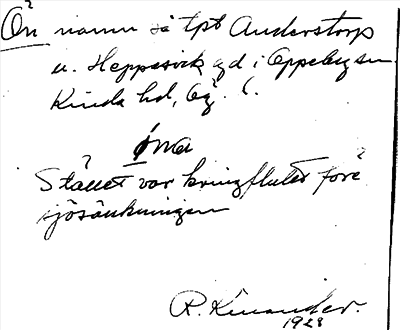 Ön namn på tpt Anderstorp
u. Heppesvik gd i Oppeby sn
Kinda hd, Ög.
Öna
Stället var kringflutet före
sjösänkningen
R. Kinander.
1928